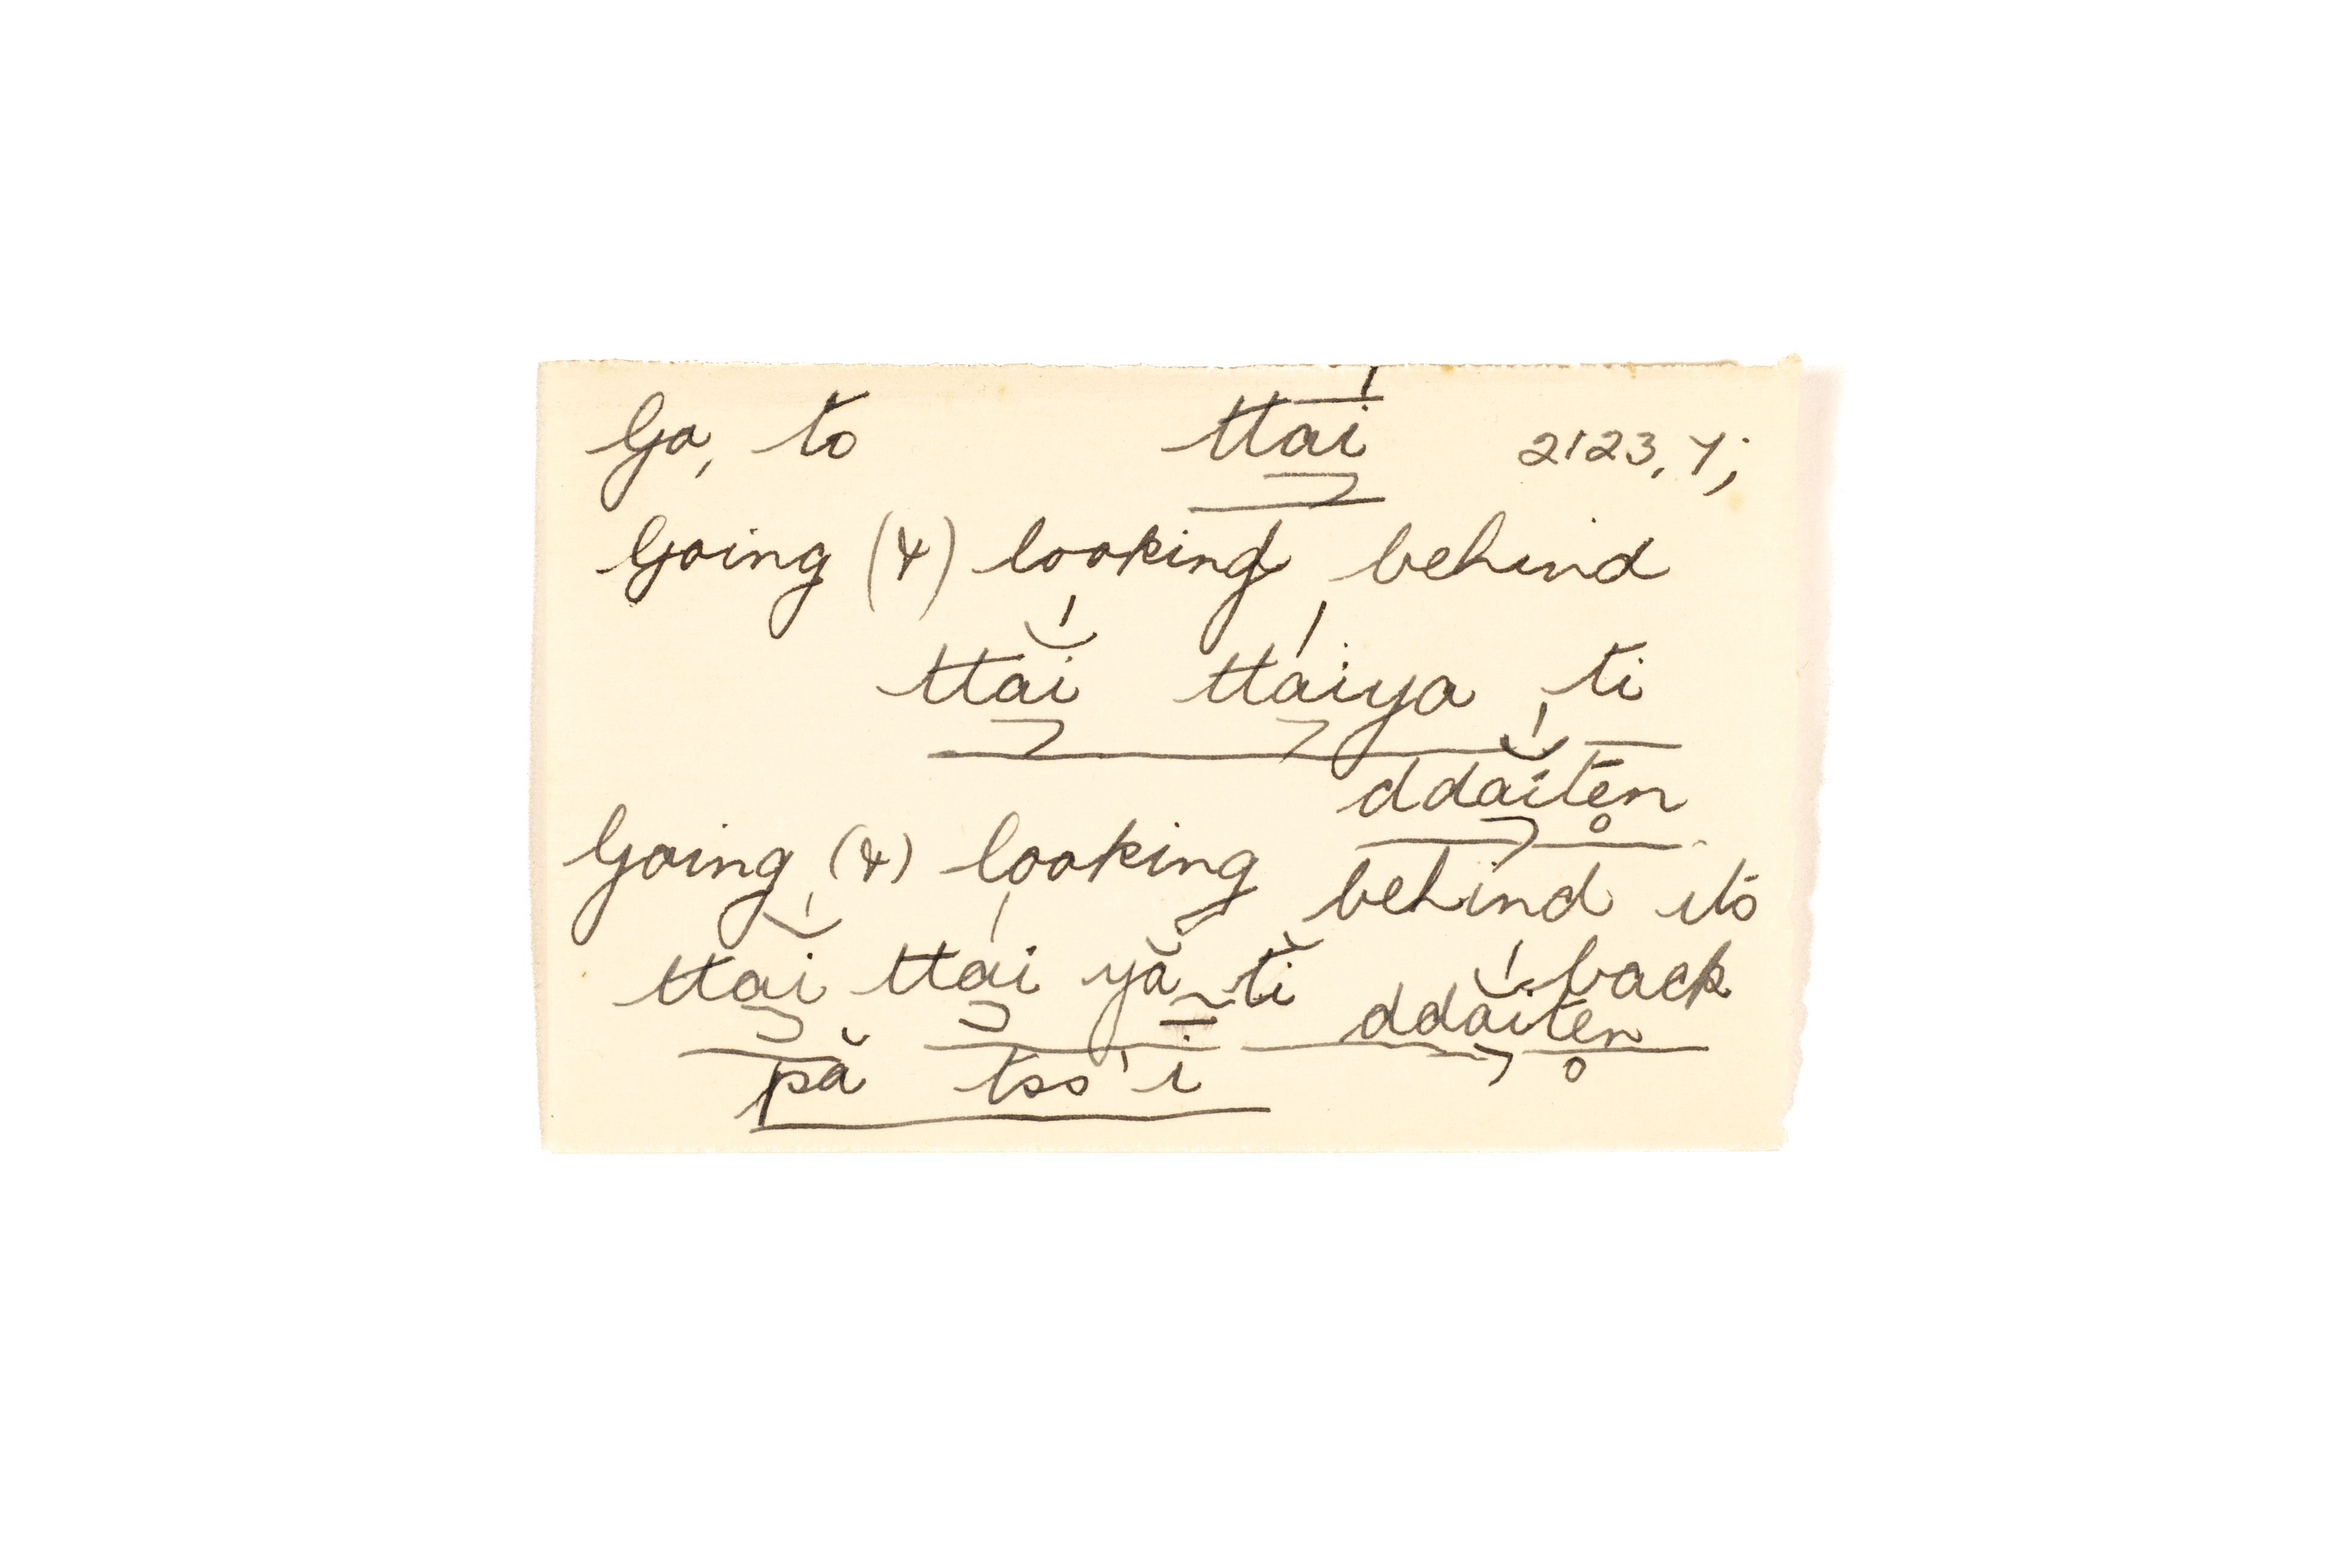 Go, to ttai 2123, 7;
Going (&) looking behind
ttăi ttaiya ti
ddăitēn
Going (&) looking behind its
back
ttăi ttai yă ti ddăitēn
pă tso'i